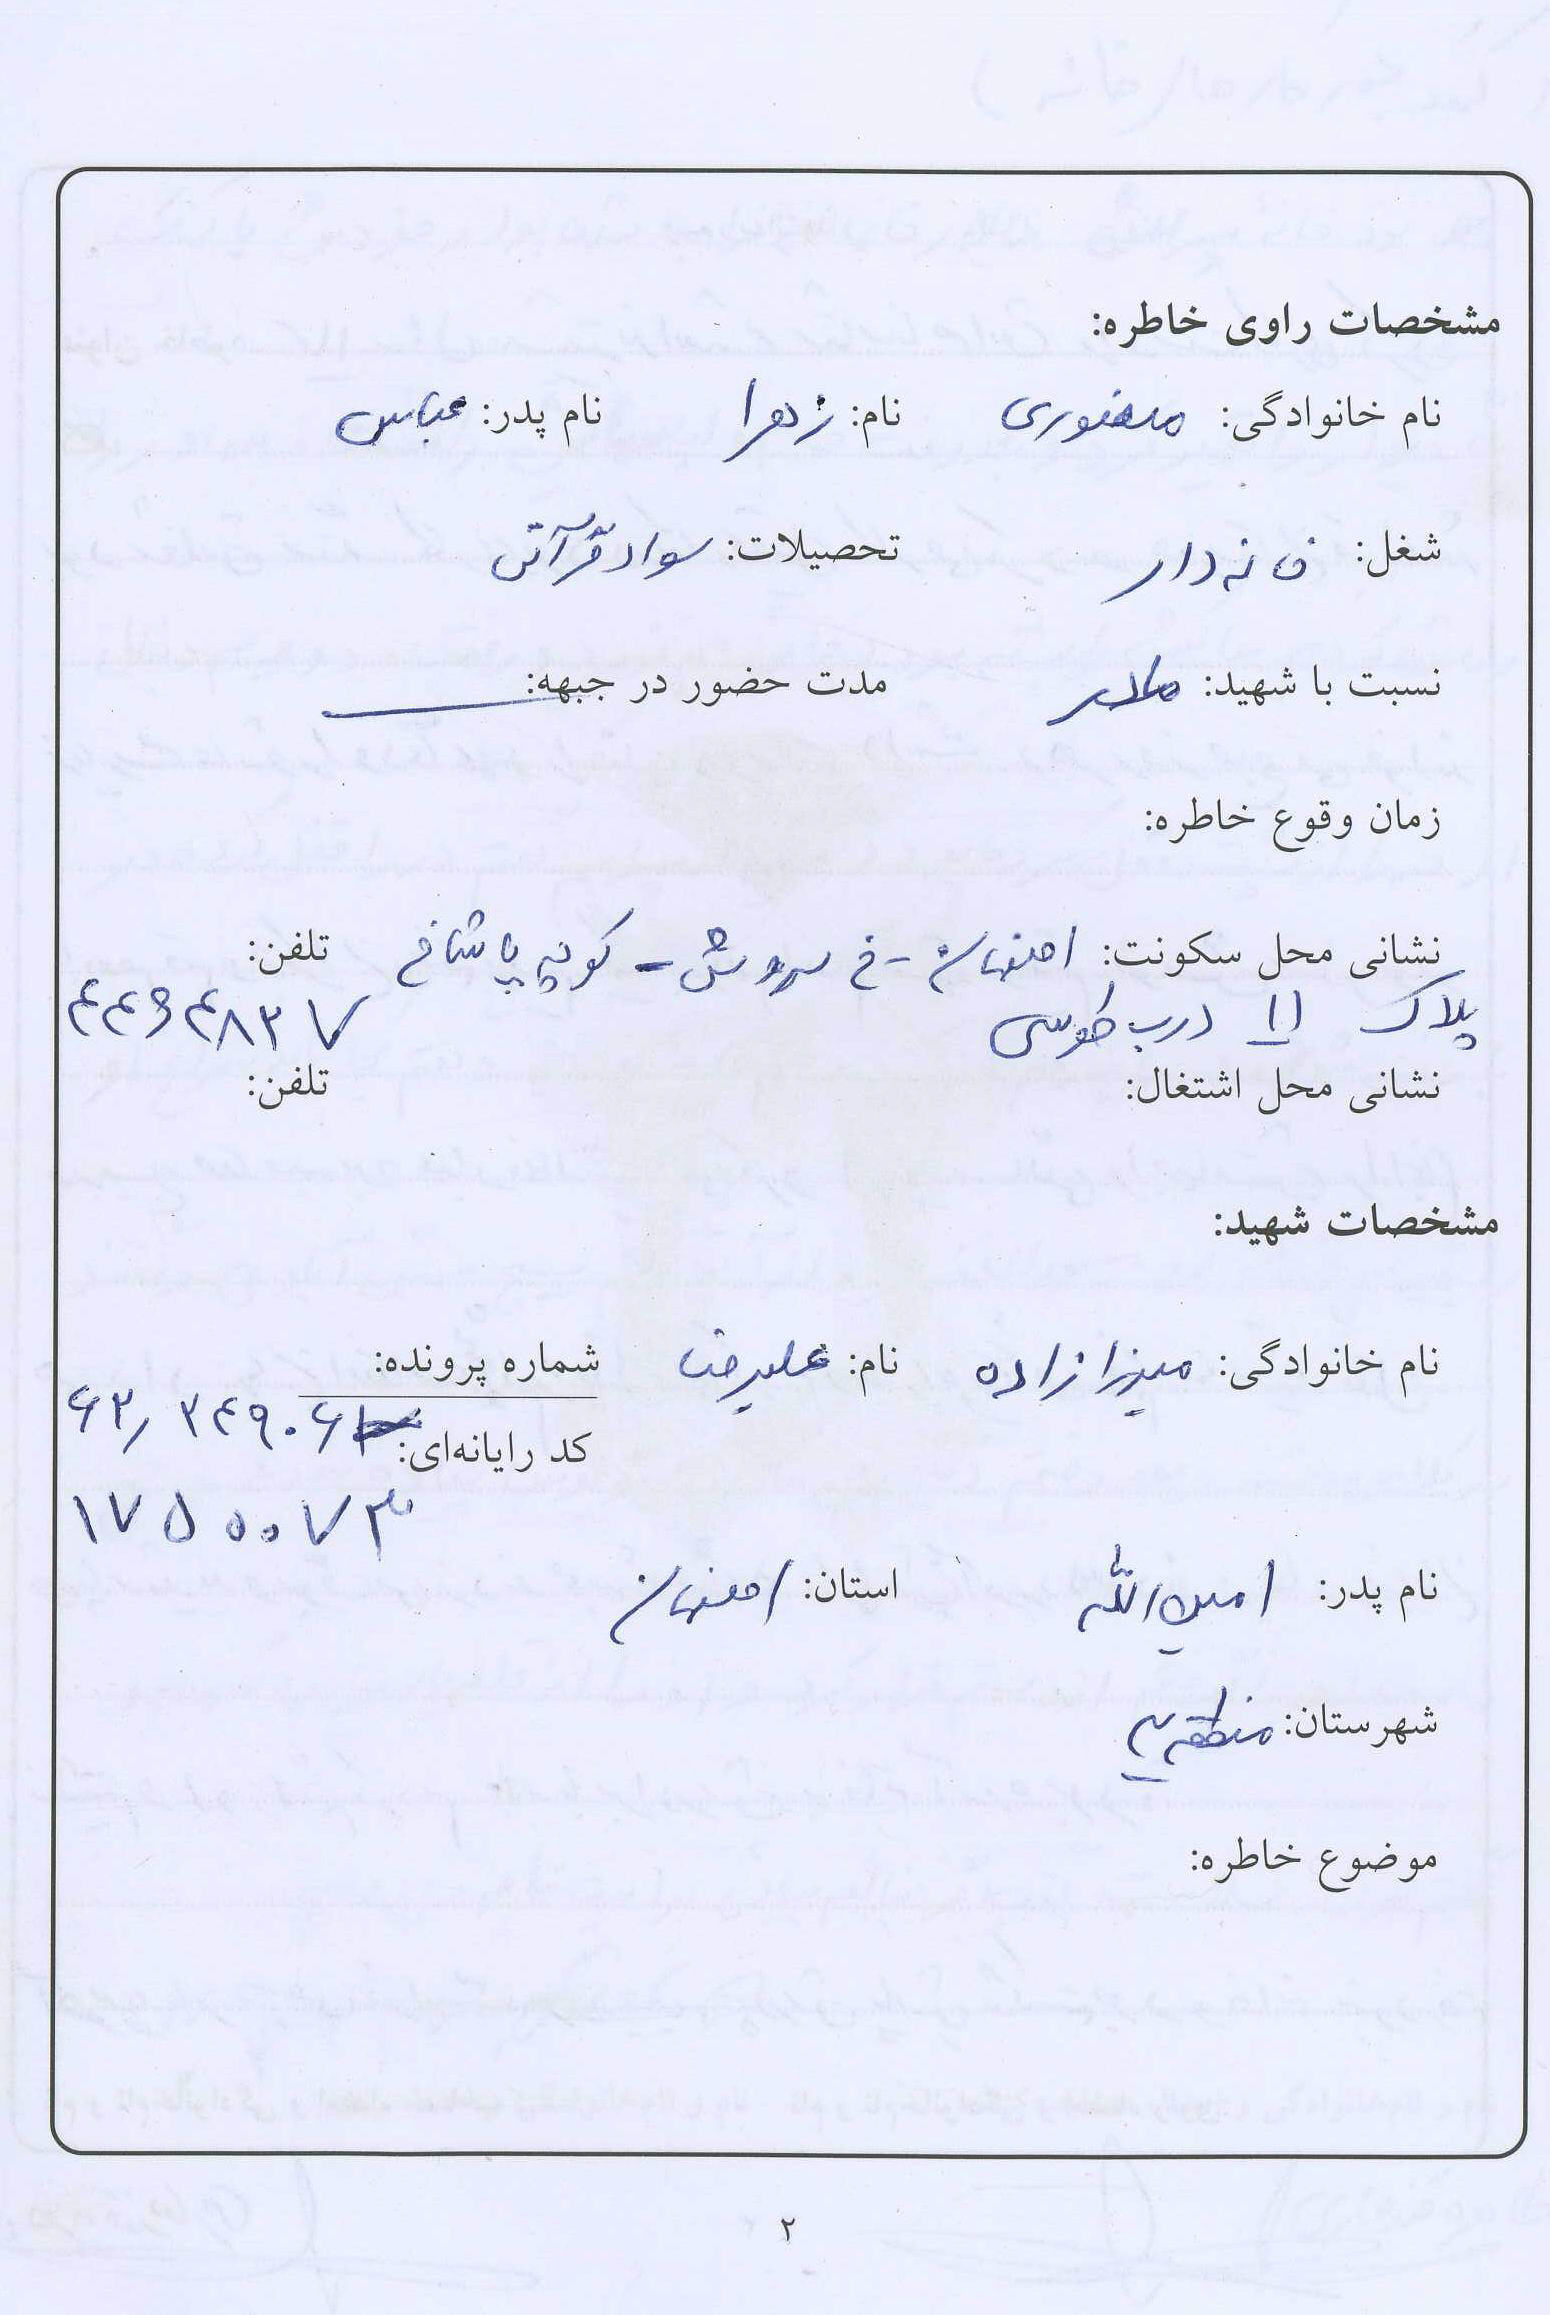 مشخصات راوی خاطره:
نام خانوادگی: منصوری نام: زهرا نام پدر: عباس
شغل: خانه دار تحصیلات: سواد قرآنی
نسبت با شهید: مادر مدت حضور در جبهه:
زمان وقوع خاطره:
نشانی محل سکونت: اصفهان - خ سروش - کوچه پاشاخ تلفن:
پلاک ۱۱ درب طوسی ۴۴۶۴۸۳۷
نشانی محل اشتغال: تلفن:
مشخصات شهید:
نام خانوادگی: میرزازاده نام: علیرضا شماره پرونده:
کد رایانه‌ای:
۱۷۵۰۰۷۳
نام پدر: امین الله استان: اصفهان
شهرستان: منطقه
موضوع خاطره:
۲